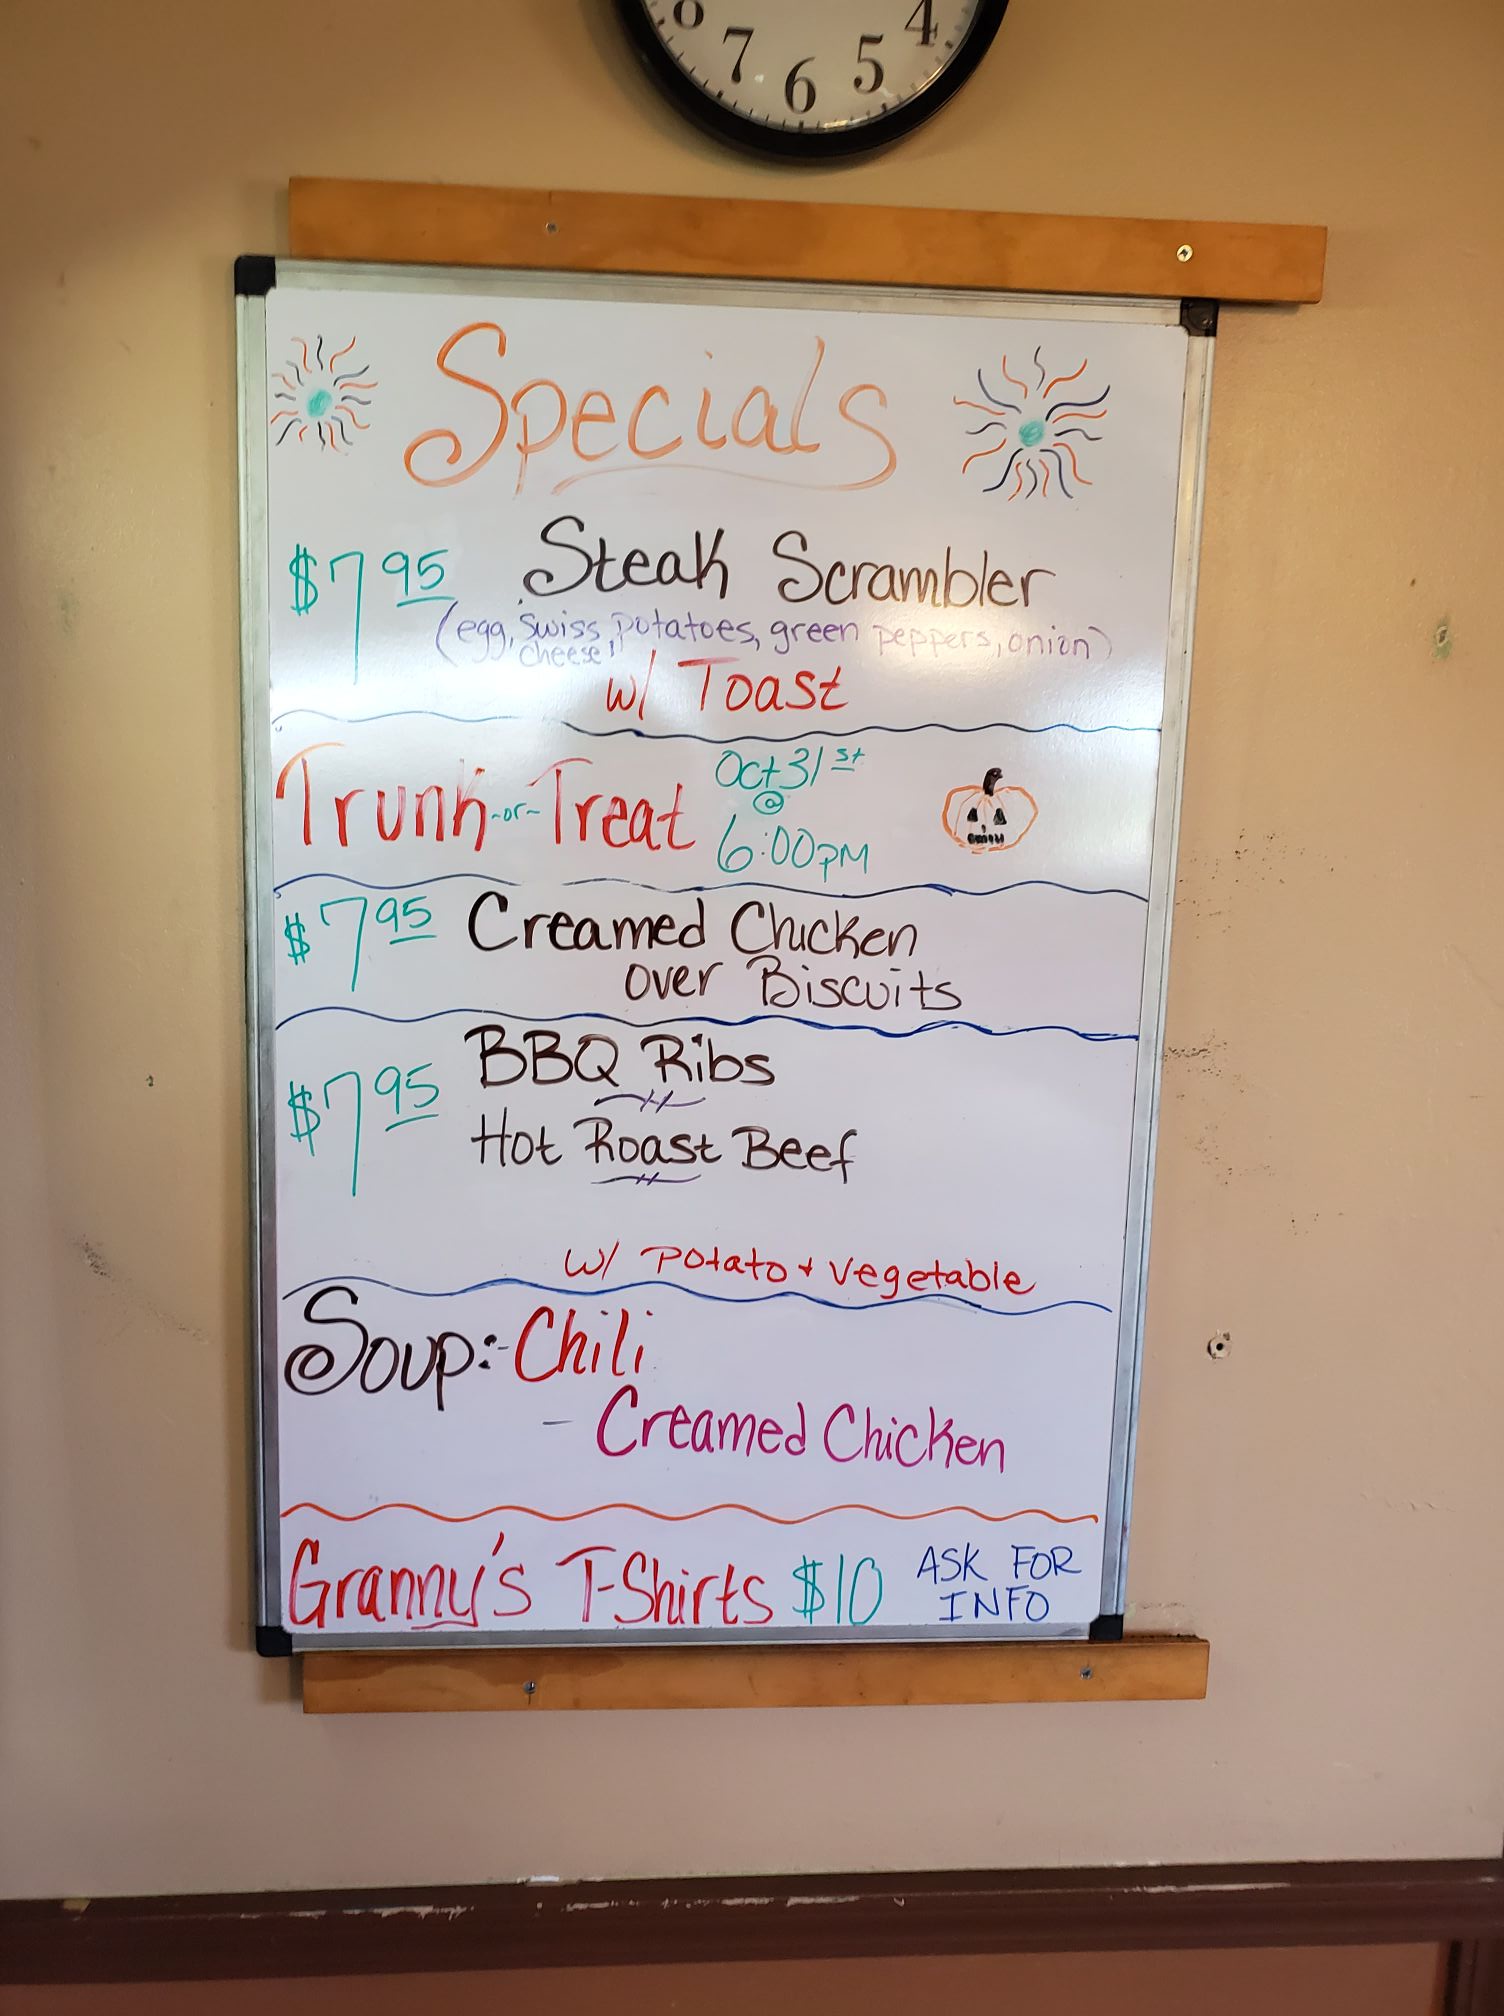 8 7 6 5 4
Specials
$7.95 Steak Scrambler
(egg, swiss cheese, potatoes, green peppers, onion)
w/ Toast
Trunk-or-Treat Oct 31st
@
6:00pm
$7.95 Creamed Chicken
over Biscuits
$7.95 BBQ Ribs
Hot Roast Beef
w/ Potato + vegetable
Soup: - Chili
- Creamed Chicken
Granny's T-Shirts $10 ASK FOR
INFO